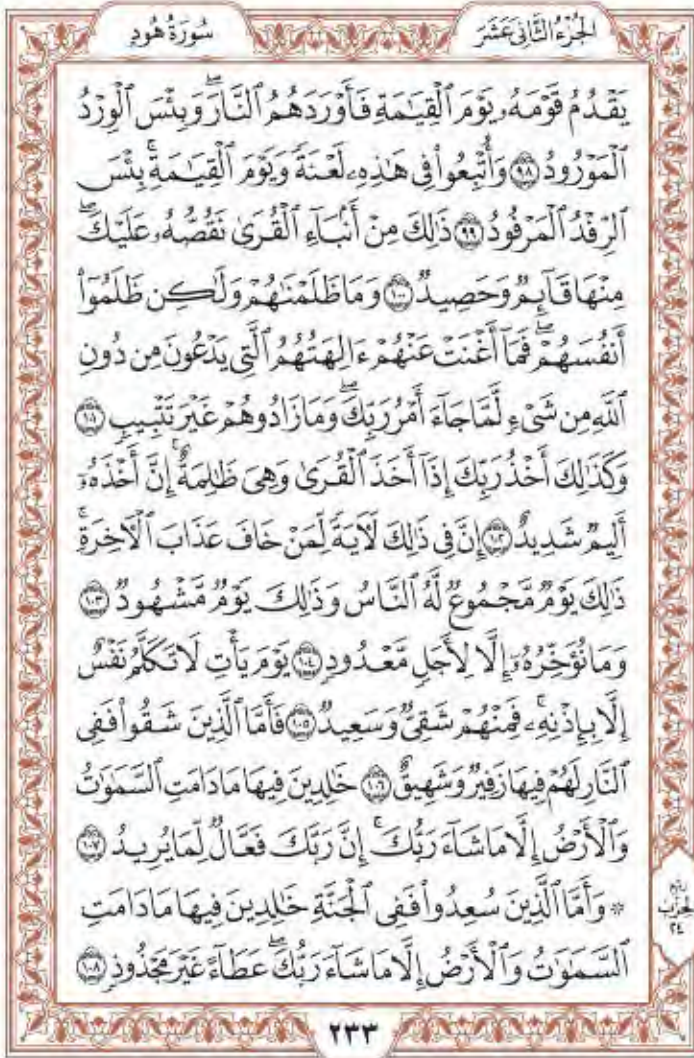 سُورَةُ هُودٍ
الجُزْءُ الثَّانِي عَشَرَ
يَقْدُمُ قَوْمَهُۥ يَوْمَ ٱلْقِيَٰمَةِ فَأَوْرَدَهُمُ ٱلنَّارَۖ وَبِئْسَ ٱلْوِرْدُ
ٱلْمَوْرُودُ ٩٨ وَأُتْبِعُوا۟ فِى هَٰذِهِۦ لَعْنَةً وَيَوْمَ ٱلْقِيَٰمَةِۚ بِئْسَ
ٱلرِّفْدُ ٱلْمَرْفُودُ ٩٩ ذَٰلِكَ مِنْ أَنۢبَآءِ ٱلْقُرَىٰ نَقُصُّهُۥ عَلَيْكَۖ
مِنْهَا قَآئِمٌ وَحَصِيدٌ ١٠٠ وَمَا ظَلَمْنَٰهُمْ وَلَٰكِن ظَلَمُوٓا۟
أَنفُسَهُمْۖ فَمَآ أَغْنَتْ عَنْهُمْ ءَالِهَتُهُمُ ٱلَّتِى يَدْعُونَ مِن دُونِ
ٱللَّهِ مِن شَىْءٍ لَّمَّا جَآءَ أَمْرُ رَبِّكَۖ وَمَا زَادُوهُمْ غَيْرَ تَتْبِيبٍ ١٠١
وَكَذَٰلِكَ أَخْذُ رَبِّكَ إِذَآ أَخَذَ ٱلْقُرَىٰ وَهِىَ ظَٰلِمَةٌۚ إِنَّ أَخْذَهُۥٓ
أَلِيمٌ شَدِيدٌ ١٠٢ إِنَّ فِى ذَٰلِكَ لَءَايَةً لِّمَنْ خَافَ عَذَابَ ٱلْءَاخِرَةِۚ
ذَٰلِكَ يَوْمٌ مَّجْمُوعٌ لَّهُ ٱلنَّاسُ وَذَٰلِكَ يَوْمٌ مَّشْهُودٌ ١٠٣
وَمَا نُؤَخِّرُهُۥٓ إِلَّا لِأَجَلٍ مَّعْدُودٍ ١٠٤ يَوْمَ يَأْتِ لَا تَكَلَّمُ نَفْسٌ
إِلَّا بِإِذْنِهِۦۚ فَمِنْهُمْ شَقِىٌّ وَسَعِيدٌ ١٠٥ فَأَمَّا ٱلَّذِينَ شَقُوا۟ فَفِى
ٱلنَّارِ لَهُمْ فِيهَا زَفِيرٌ وَشَهِيقٌ ١٠٦ خَٰلِدِينَ فِيهَا مَا دَامَتِ ٱلسَّمَٰوَٰتُ
وَٱلْأَرْضُ إِلَّا مَا شَآءَ رَبُّكَۚ إِنَّ رَبَّكَ فَعَّالٌ لِّمَا يُرِيدُ ١٠٧
۞ وَأَمَّا ٱلَّذِينَ سُعِدُوا۟ فَفِى ٱلْجَنَّةِ خَٰلِدِينَ فِيهَا مَا دَامَتِ
ٱلسَّمَٰوَٰتُ وَٱلْأَرْضُ إِلَّا مَا شَآءَ رَبُّكَۖ عَطَآءً غَيْرَ مَجْذُوذٍ ١٠٨
رُبْع
الحِزْب
٢٤
٢٣٣